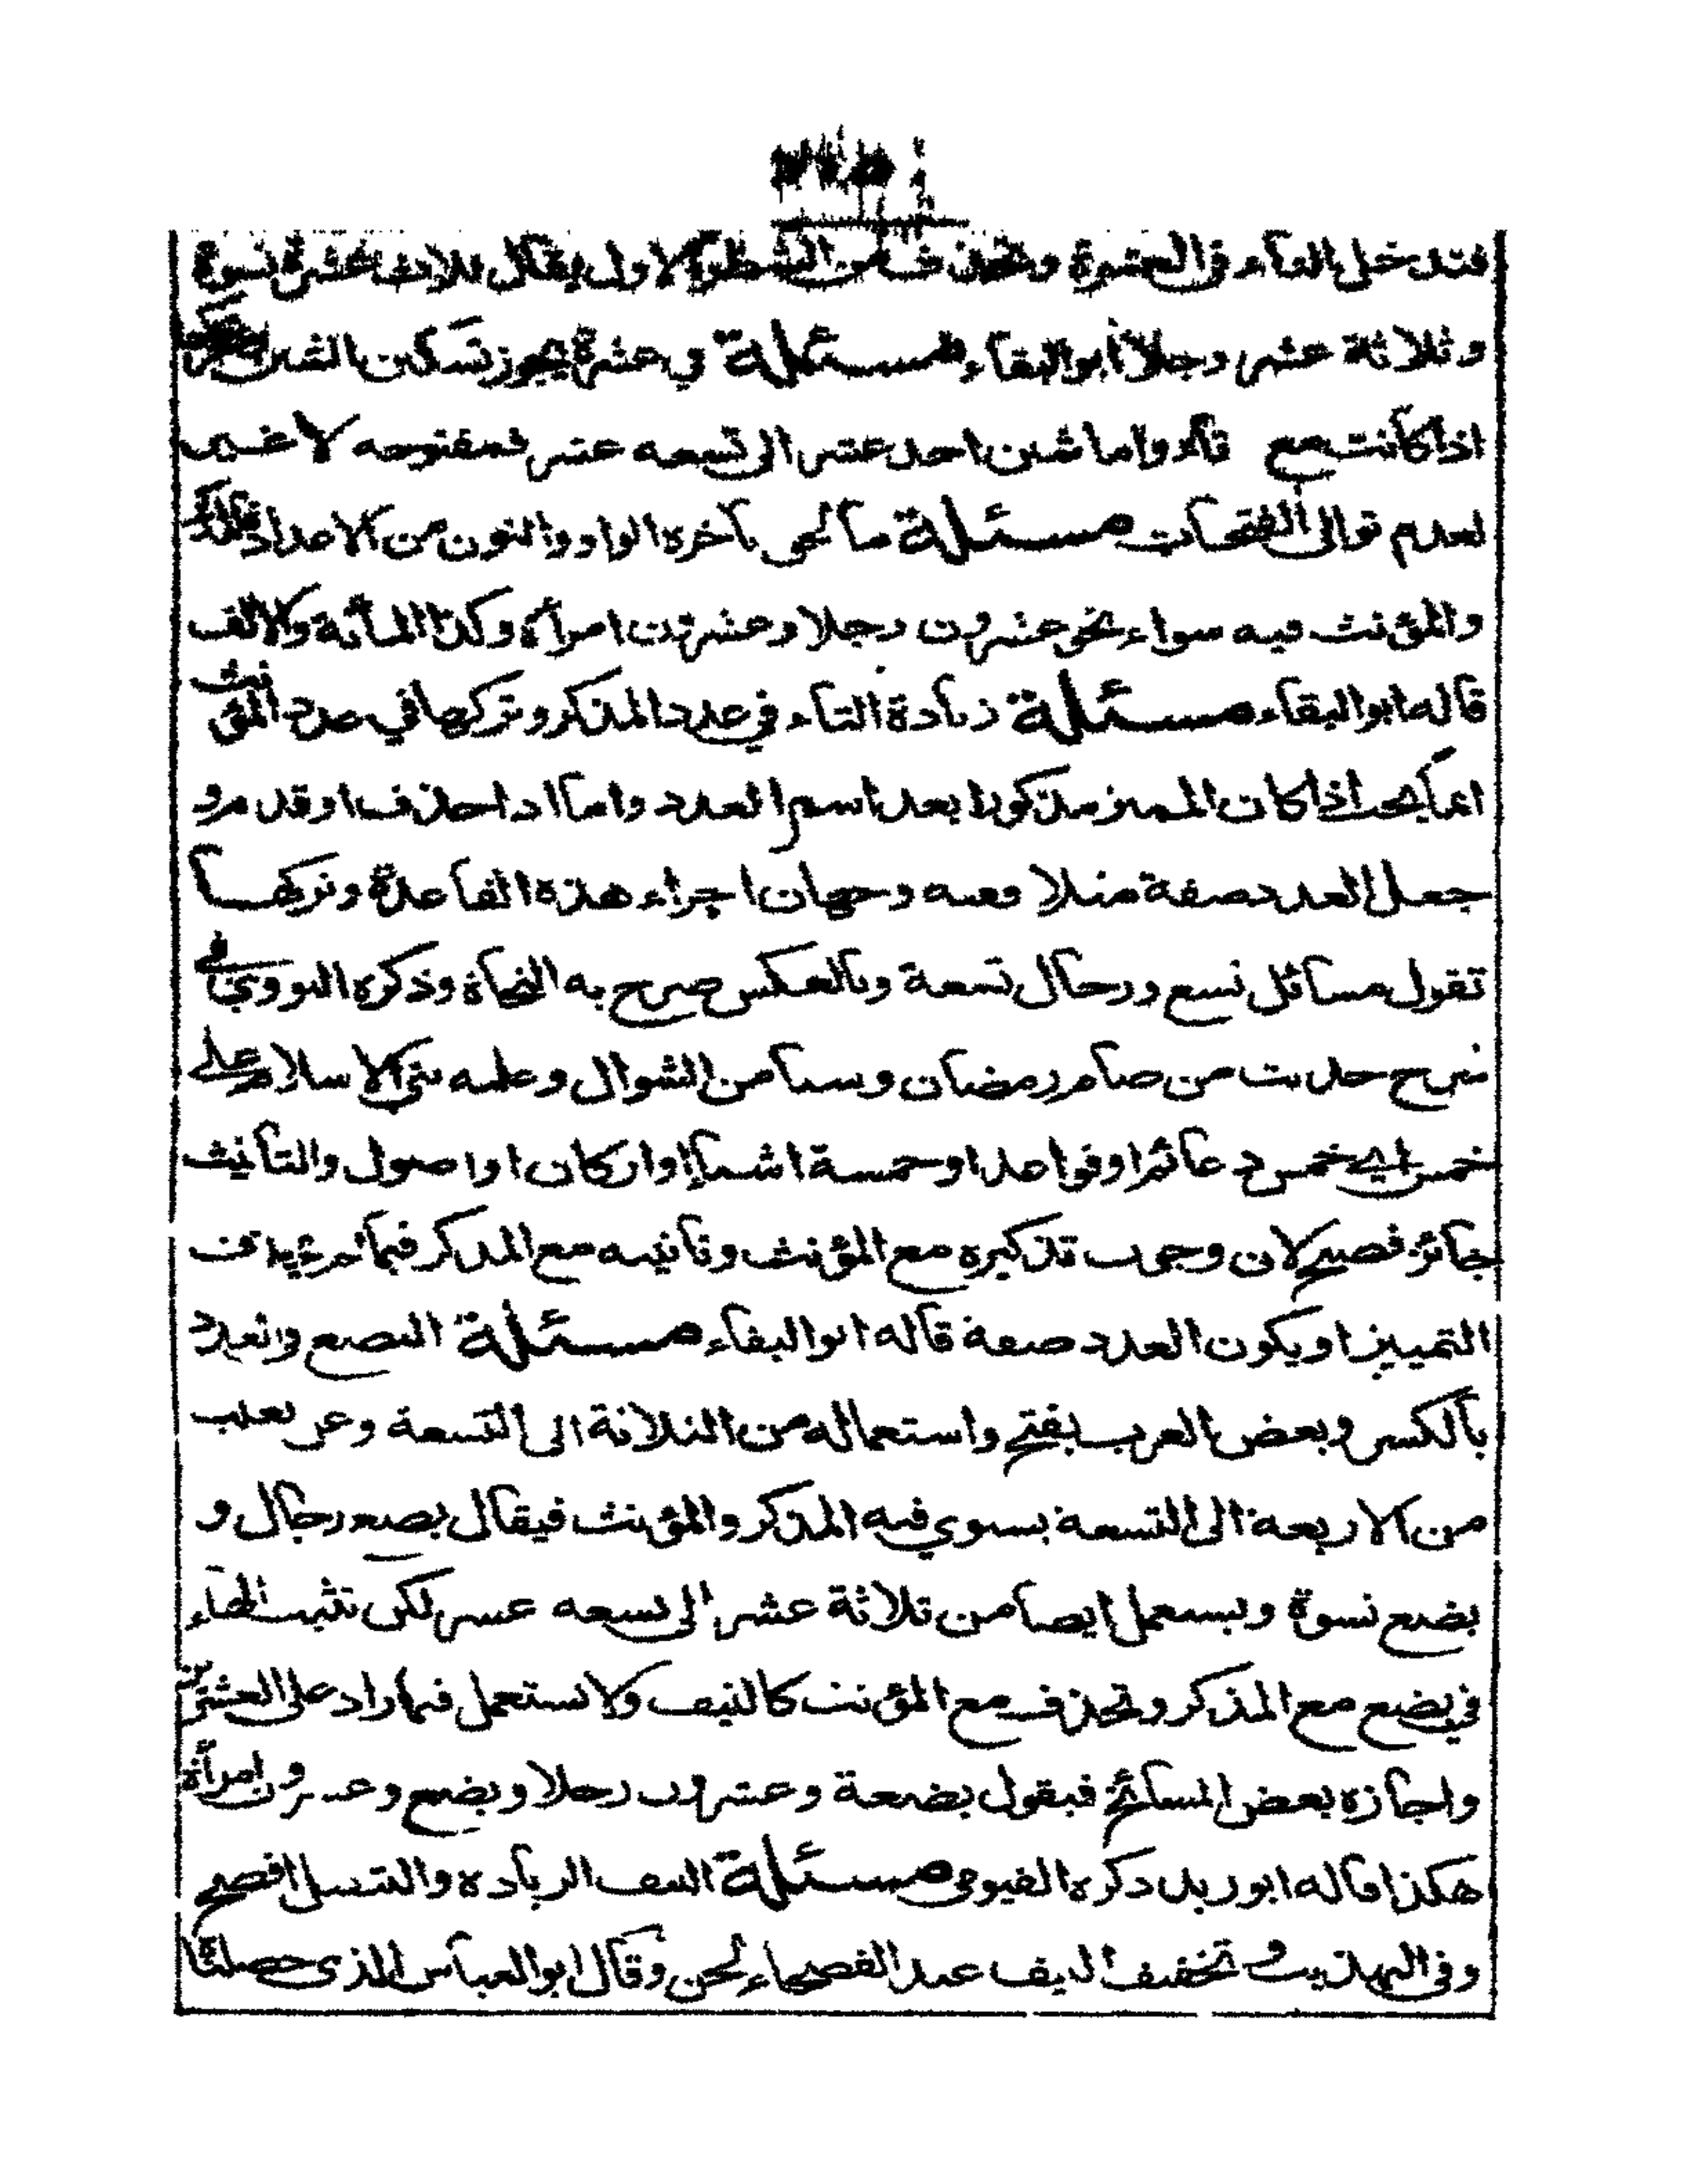 فتدخل التاء في العشرة وتحذف من الشطر الاول يقال ثلاث عشرة نسوة
وثلاثة عشر رجلا أبو البقاء مسئلة في عشرة يجوز تسكين الشين
اذا كانت مع تاء واما شين احد عشر الى تسعه عشر فمفتوحه لا غير
لعدم توالى الفتحات مسئلة ما لحق بآخره الواو والنون من الاعداد
والمؤنث فيه سواء نحو عشرون رجلا وعشرون امرأة وكذا المائة والالف
قاله ابو البقاء مسئلة زيادة التاء في عدد المذكر وتركها في عدد المؤنث
انما يجب اذا كان المميز مذكورا بعد اسم العدد واما اذا حذف او قدم و
جعل العدد صفة مثلا ففيه وجهان اجراء هذه القاعدة وتركها
تقول مسائل تسع ورجال تسعة وبالعكس صرح به النحاة وذكره النووي في
شرح حديث من صام رمضان وستا من الشوال وعليه بني الاسلام على
خمس اي خمس دعائم او قواعد او خمسة اشياء او اركان او اصول والتانيث
جائز فصيح لان وجوب تذكيره مع المؤنث وتانيثه مع المذكر فيما
التمييز او يكون العدد صفة قاله ابو البقاء مسئلة البضع والعدد
بالكسر وبعض العرب بفتح واستعماله من الثلاثة الى التسعة وعن ثعلب
من الاربعة الى التسعة يستوي فيه المذكر والمؤنث فيقال بضع رجال و
بضع نسوة ويستعمل ايضا من ثلاثة عشر الى تسعه عشر لكن تثبت الهاء
في بضع مع المذكر وتحذف مع المؤنث كالنيف ولا تستعمل فيما زاد على العشرين
واجازه بعض المشائخ فيقول بضعة وعشرون رجلا وبضع وعشرون امرأة
هكذا قاله ابو زيد ذكره الفيومي مسئلة النيف الزيادة والتثقيل افصح
وفي التهذيب وتخفيف النيف عند الفصحاء لحن وقال ابو العباس الذي حصلنا